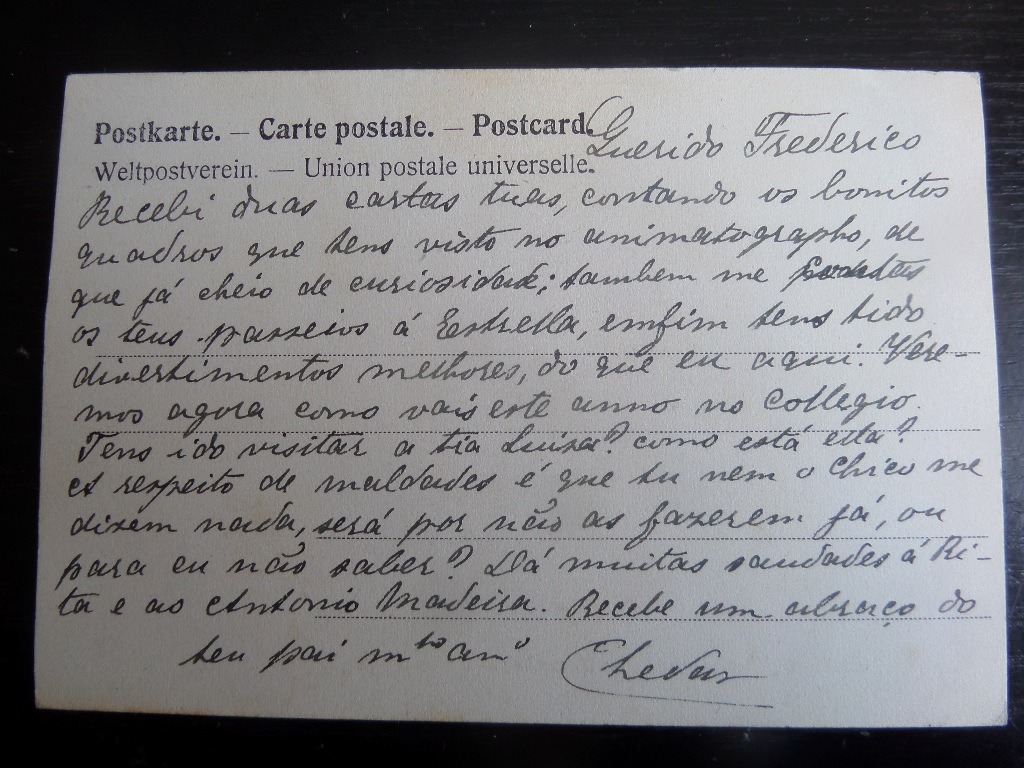 Postkarte. – Carte postale. – Postcard.
Weltpostverein. — Union postale universelle.
Querido Frederico
Recebi duas cartas tuas, contando os bonitos
quadros que tens visto no animatographo, de
que já cheio de curiosidade; tambem me
os teus passeios á Estrella, emfim tens tido
divertimentos melhores, do que eu aqui. Vere-
mos agora como vais este anno no Collegio.
Tens ido visitar a tia Luiza? como está ella?
A respeito de maldades é que tu nem o Chico me
dizem nada, será por não as fazerem já, ou
para eu não saber? Dá muitas saudades á Ri-
ta e ao Antonio Madeira. Recebe um abraço do
teu pai m.to am.o